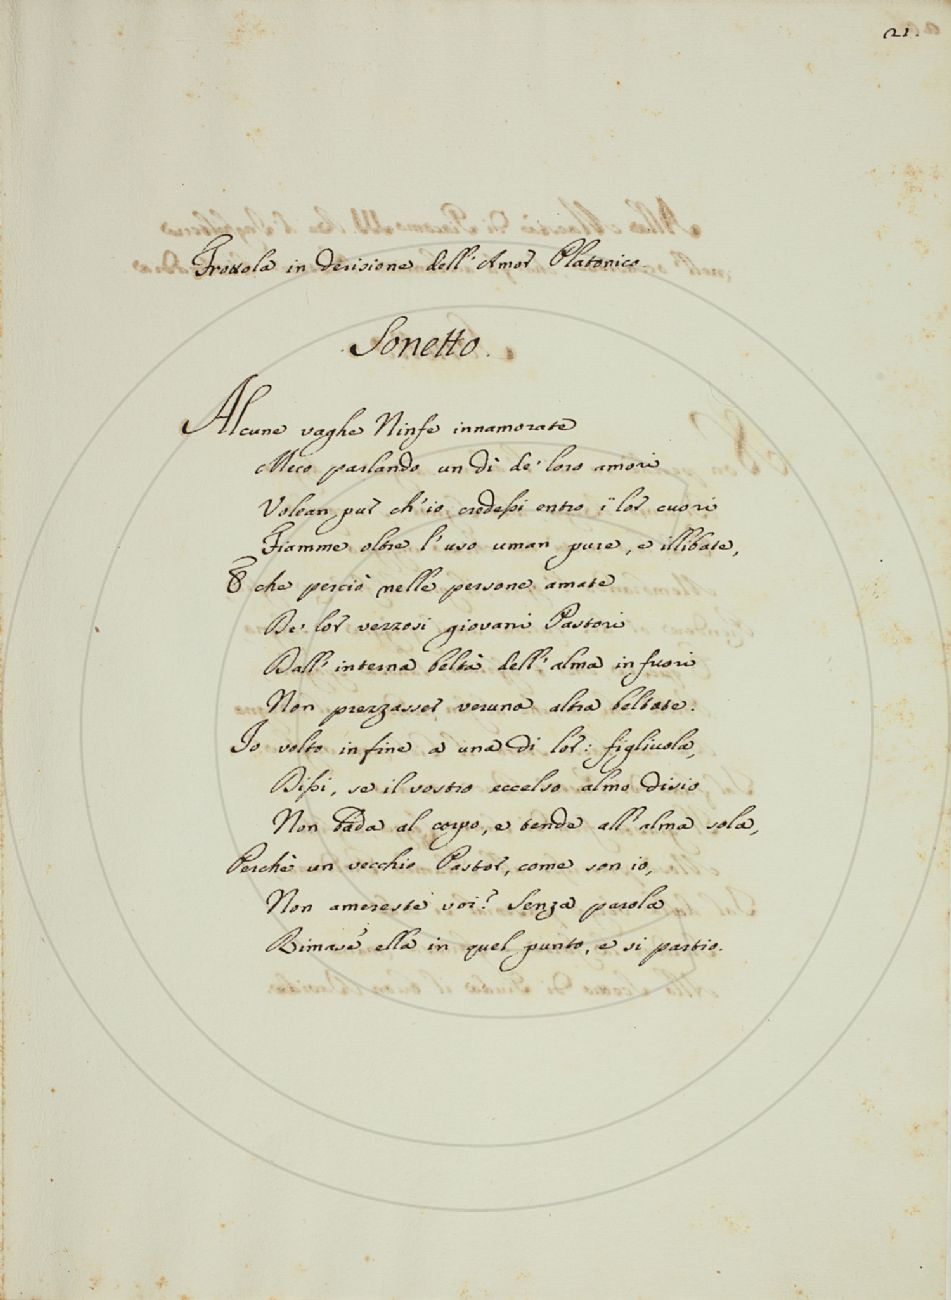 21.
Frottola in derisione dell' Amor Platonico.
Sonetto.
Alcune vaghe Ninfe innamorate
Meco parlando un dì de' loro amori
Volean, pur ch'io credeßi entro i lor cuori
Fiamme oltre l'uso uman pure, e illibate,
E che perciò nelle persone amate
De' lor vezzosi giovani Pastori
Dall' interna beltà dell' alma infuori
Non prezzasser veruna altra beltate.
Io volto infine a una di lor: figliuola,
Dißi, se il vostro eccelso almo disio
Non bada al corpo, e tende all' alma sola,
Perchè un vecchio Pastor, come son io,
Non amereste voi? Senza parola
Rimase ella in quel punto, e si partio.